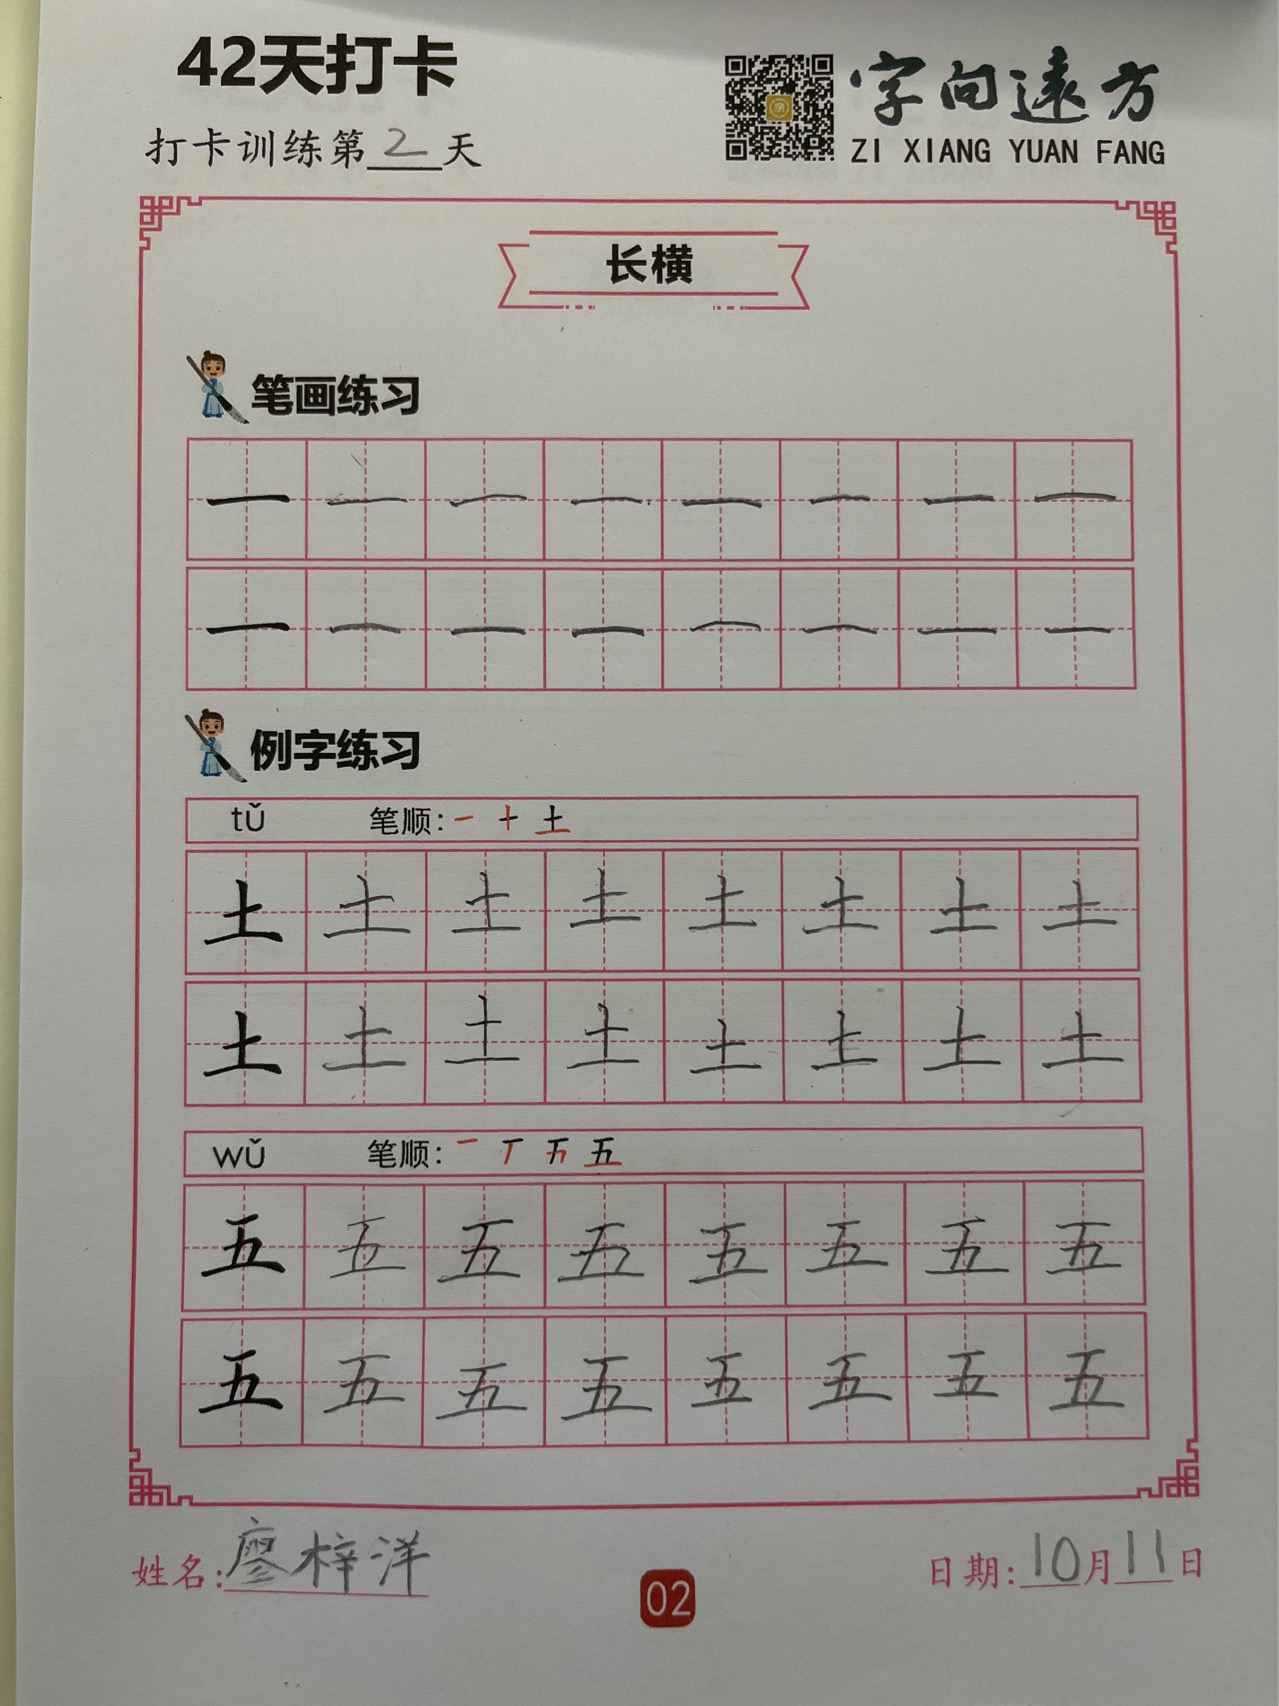 42天打卡
打卡训练第2天
字向远方
ZI XIANG YUAN FANG
长横
笔画练习
一 一 一 一 一 一 一 一
一 一 一 一 一 一 一 一
例字练习
tǔ 笔顺：一 十 土
土 土 土 土 土 土 土 土
土 土 土 土 土 土 土 土
wǔ 笔顺：一 丆 万 五
五 五 五 五 五 五 五 五
五 五 五 五 五 五 五 五
姓名：廖梓洋
02
日期：10月11日